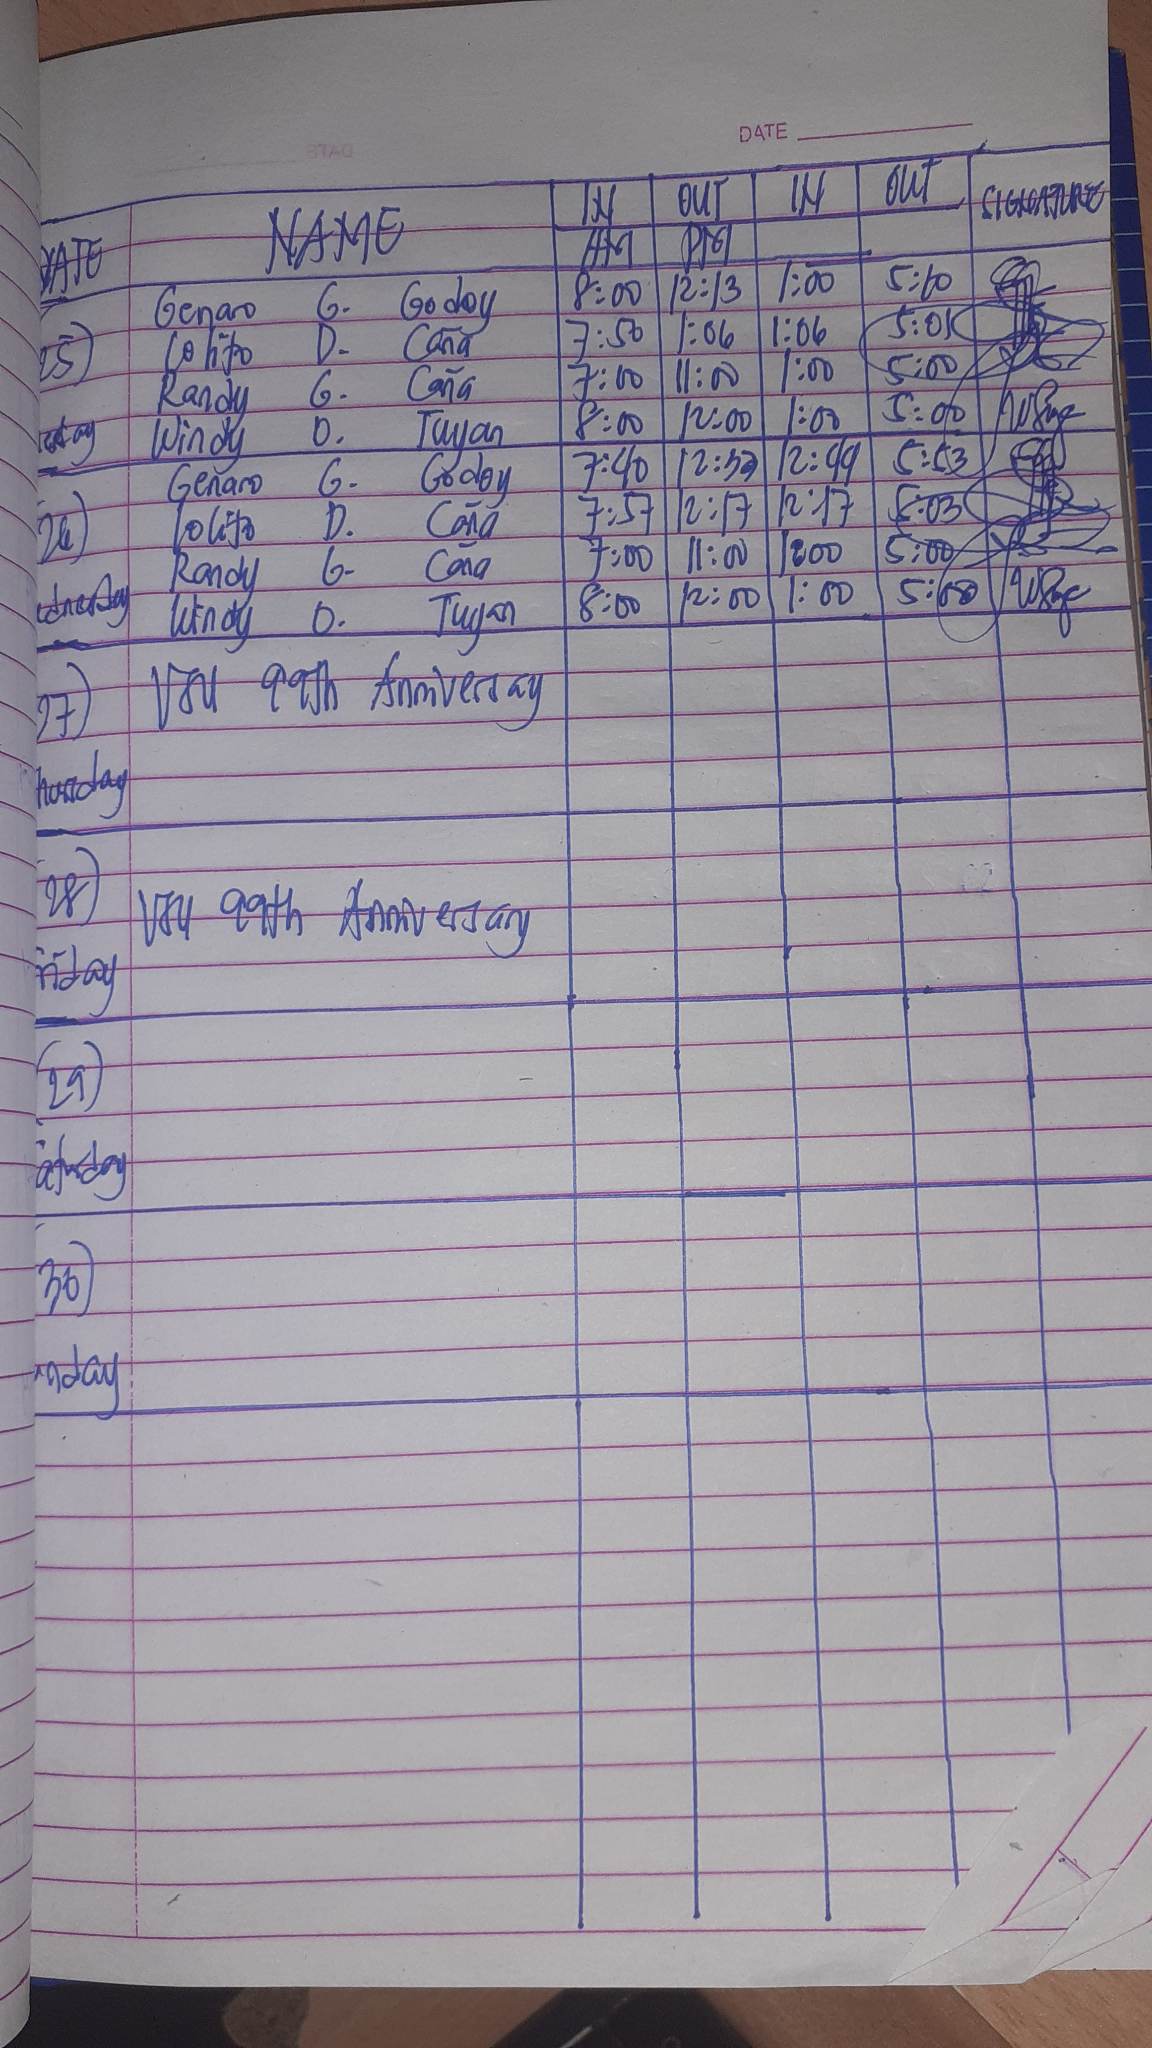 DATE
DATE NAME IN OUT IN OUT SIGNATURE
AM PM
Genaro G. Godoy 8:00 12:13 1:00 5:10
25) Lolito D. Caña 7:50 1:06 1:06 5:01
Randy G. Caña 7:00 11:00 1:00 5:00
Windy O. Tuyan 8:00 12:00 1:00 5:00
Genaro G. Godoy 7:40 12:39 12:49 5:53
26) Lolito D. Caña 7:57 12:17 12:17 5:03
Randy G. Caña 7:00 11:00 1:00 5:00
Wednesday Windy O. Tuyan 8:00 12:00 1:00 5:00
27) VSU 99th Anniversay
Thursday
28) VSU 99th Anniversary
Friday
(29)
Saturday
30)
Sunday